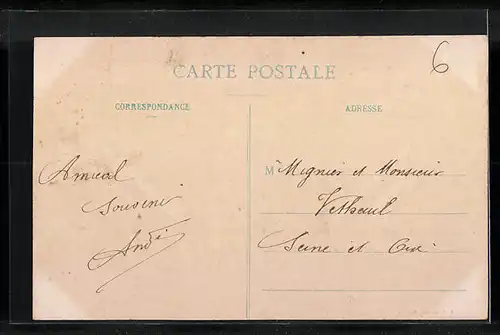 6
CARTE POSTALE
CORRESPONDANCE
ADRESSE
Amical
Souvenir
André
M Mignier et Monsieur
Vetheuil
Seine et Oise